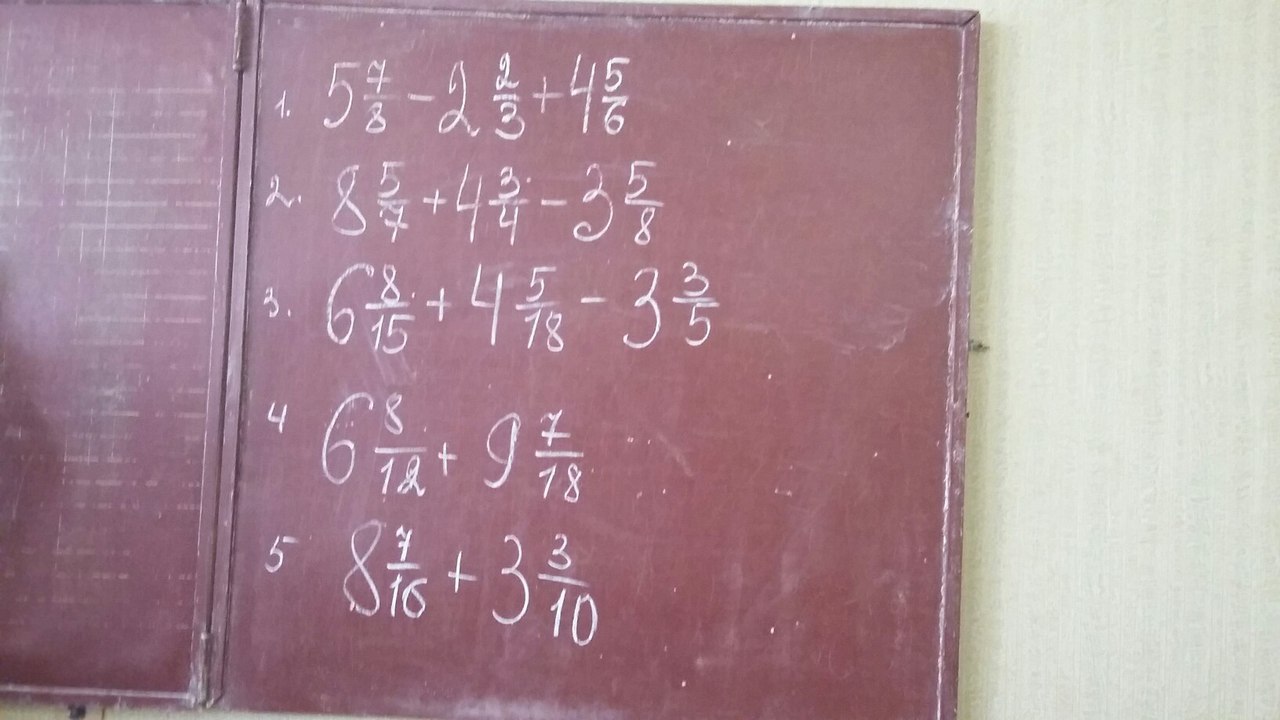 1. 5 7/8 - 2 2/3 + 4 5/6
2. 8 5/7 + 4 3/4 - 3 5/8
3. 6 8/15 + 4 5/18 - 3 3/5
4 6 8/12 + 9 7/18
5 8 7/16 + 3 3/10